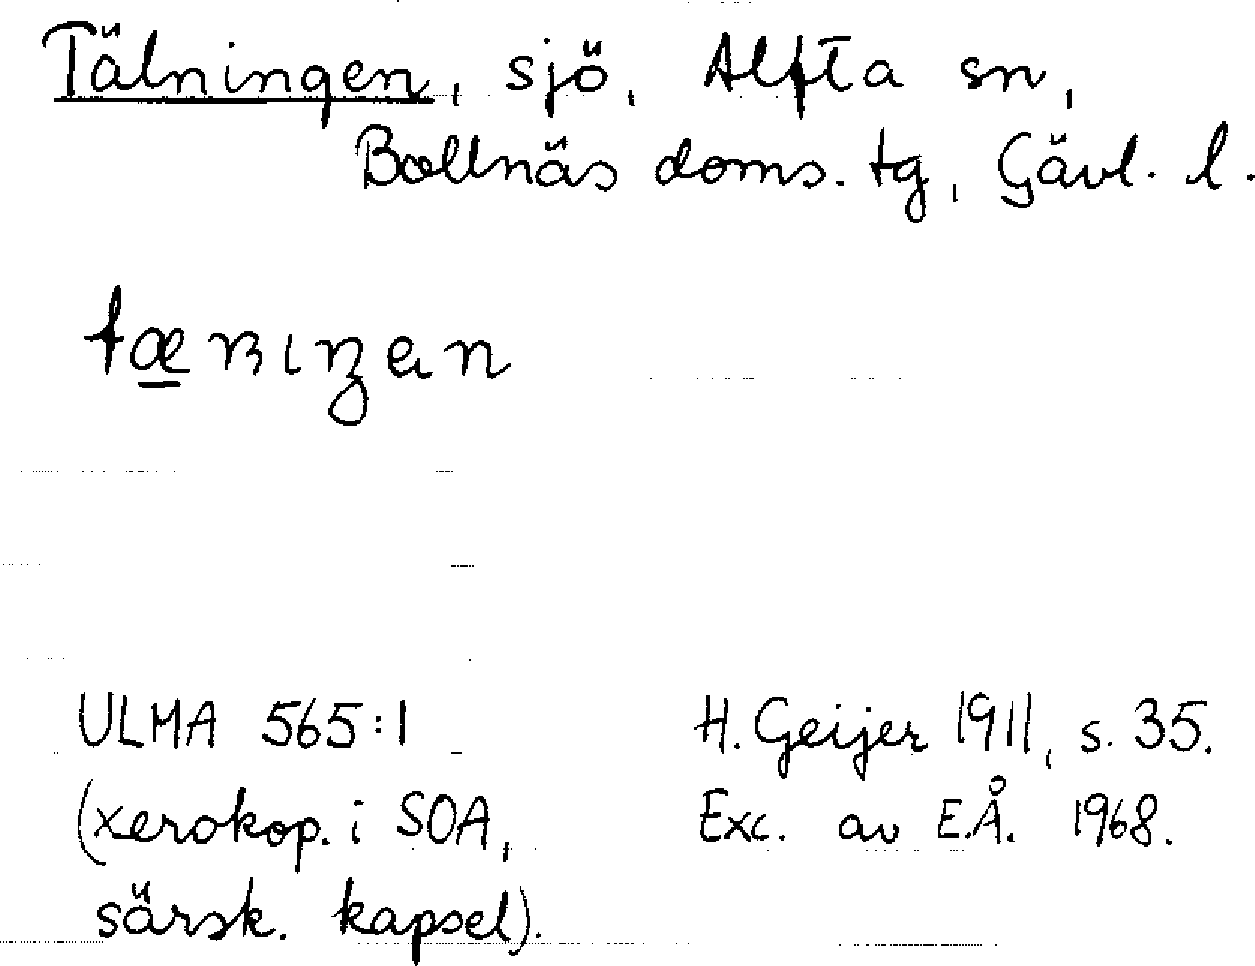 Tälningen, sjö, Alfta sn,
Bollnäs doms. tg, Gävl. l.
ULMA 565:1
(xerokop. i SOA,
särsk. kapsel).
H. Geijer 1911, s. 35.
Exc. av E.Å. 1968.